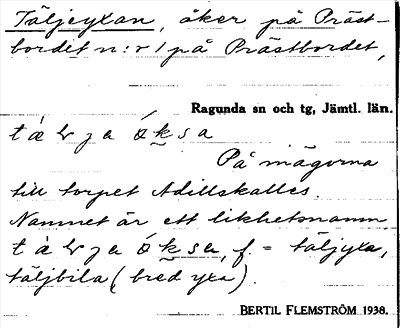 Täljeyxan, åker på Präst-
bordet n:r 1 på Prästbordet,
Ragunda sn och tg, Jämtl. län.
tæljaóksa
På mägorna
till torpet Adillskalles.
Namnet är ett likhetsnamn
tæljaóksa, f. = täljyxa,
täljbila (bred yxa).
BERTIL FLEMSTRÖM 1938.